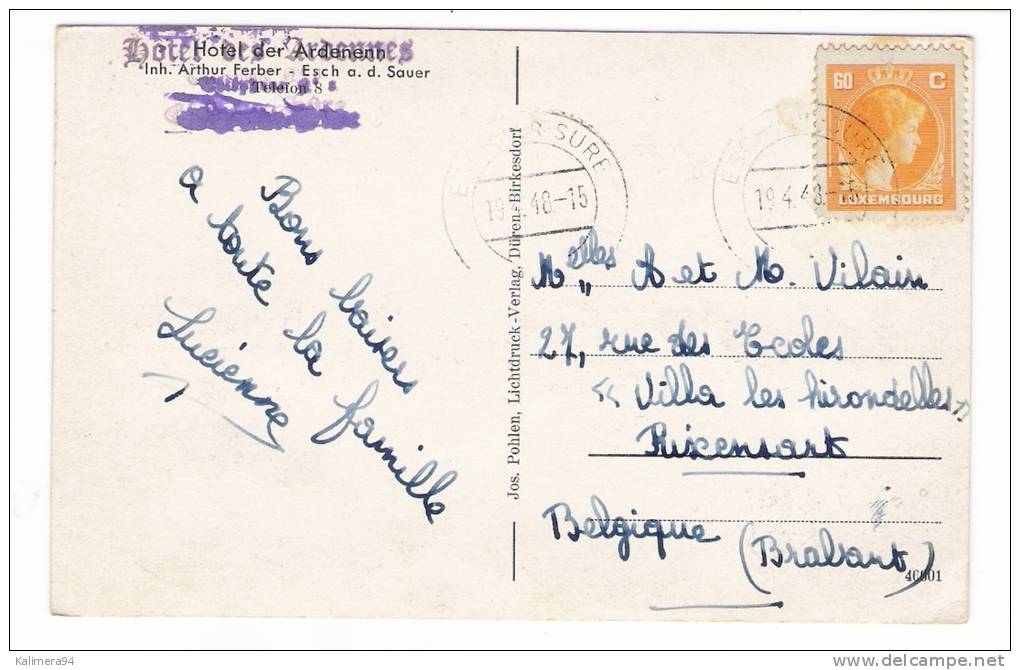 Hotel des Ardennes
Hotel der Ardenenn
Inh. Arthur Ferber - Esch a. d. Sauer
Telefon 8
Bons baisers
a toute la famille
Lucienne
Jos. Pohlen, Lichtdruck-Verlag, Düren-Birkesdorf
SURE
19.4.48-15
ESCH SURE
19.4.48-15
60 C
LUXEMBOURG
Melles A et M. Vilain
27, rue des Ecoles
« Villa les hirondelles »
Rixensart
Belgique (Brabant)
46001
Kalimera94
delcampe.net